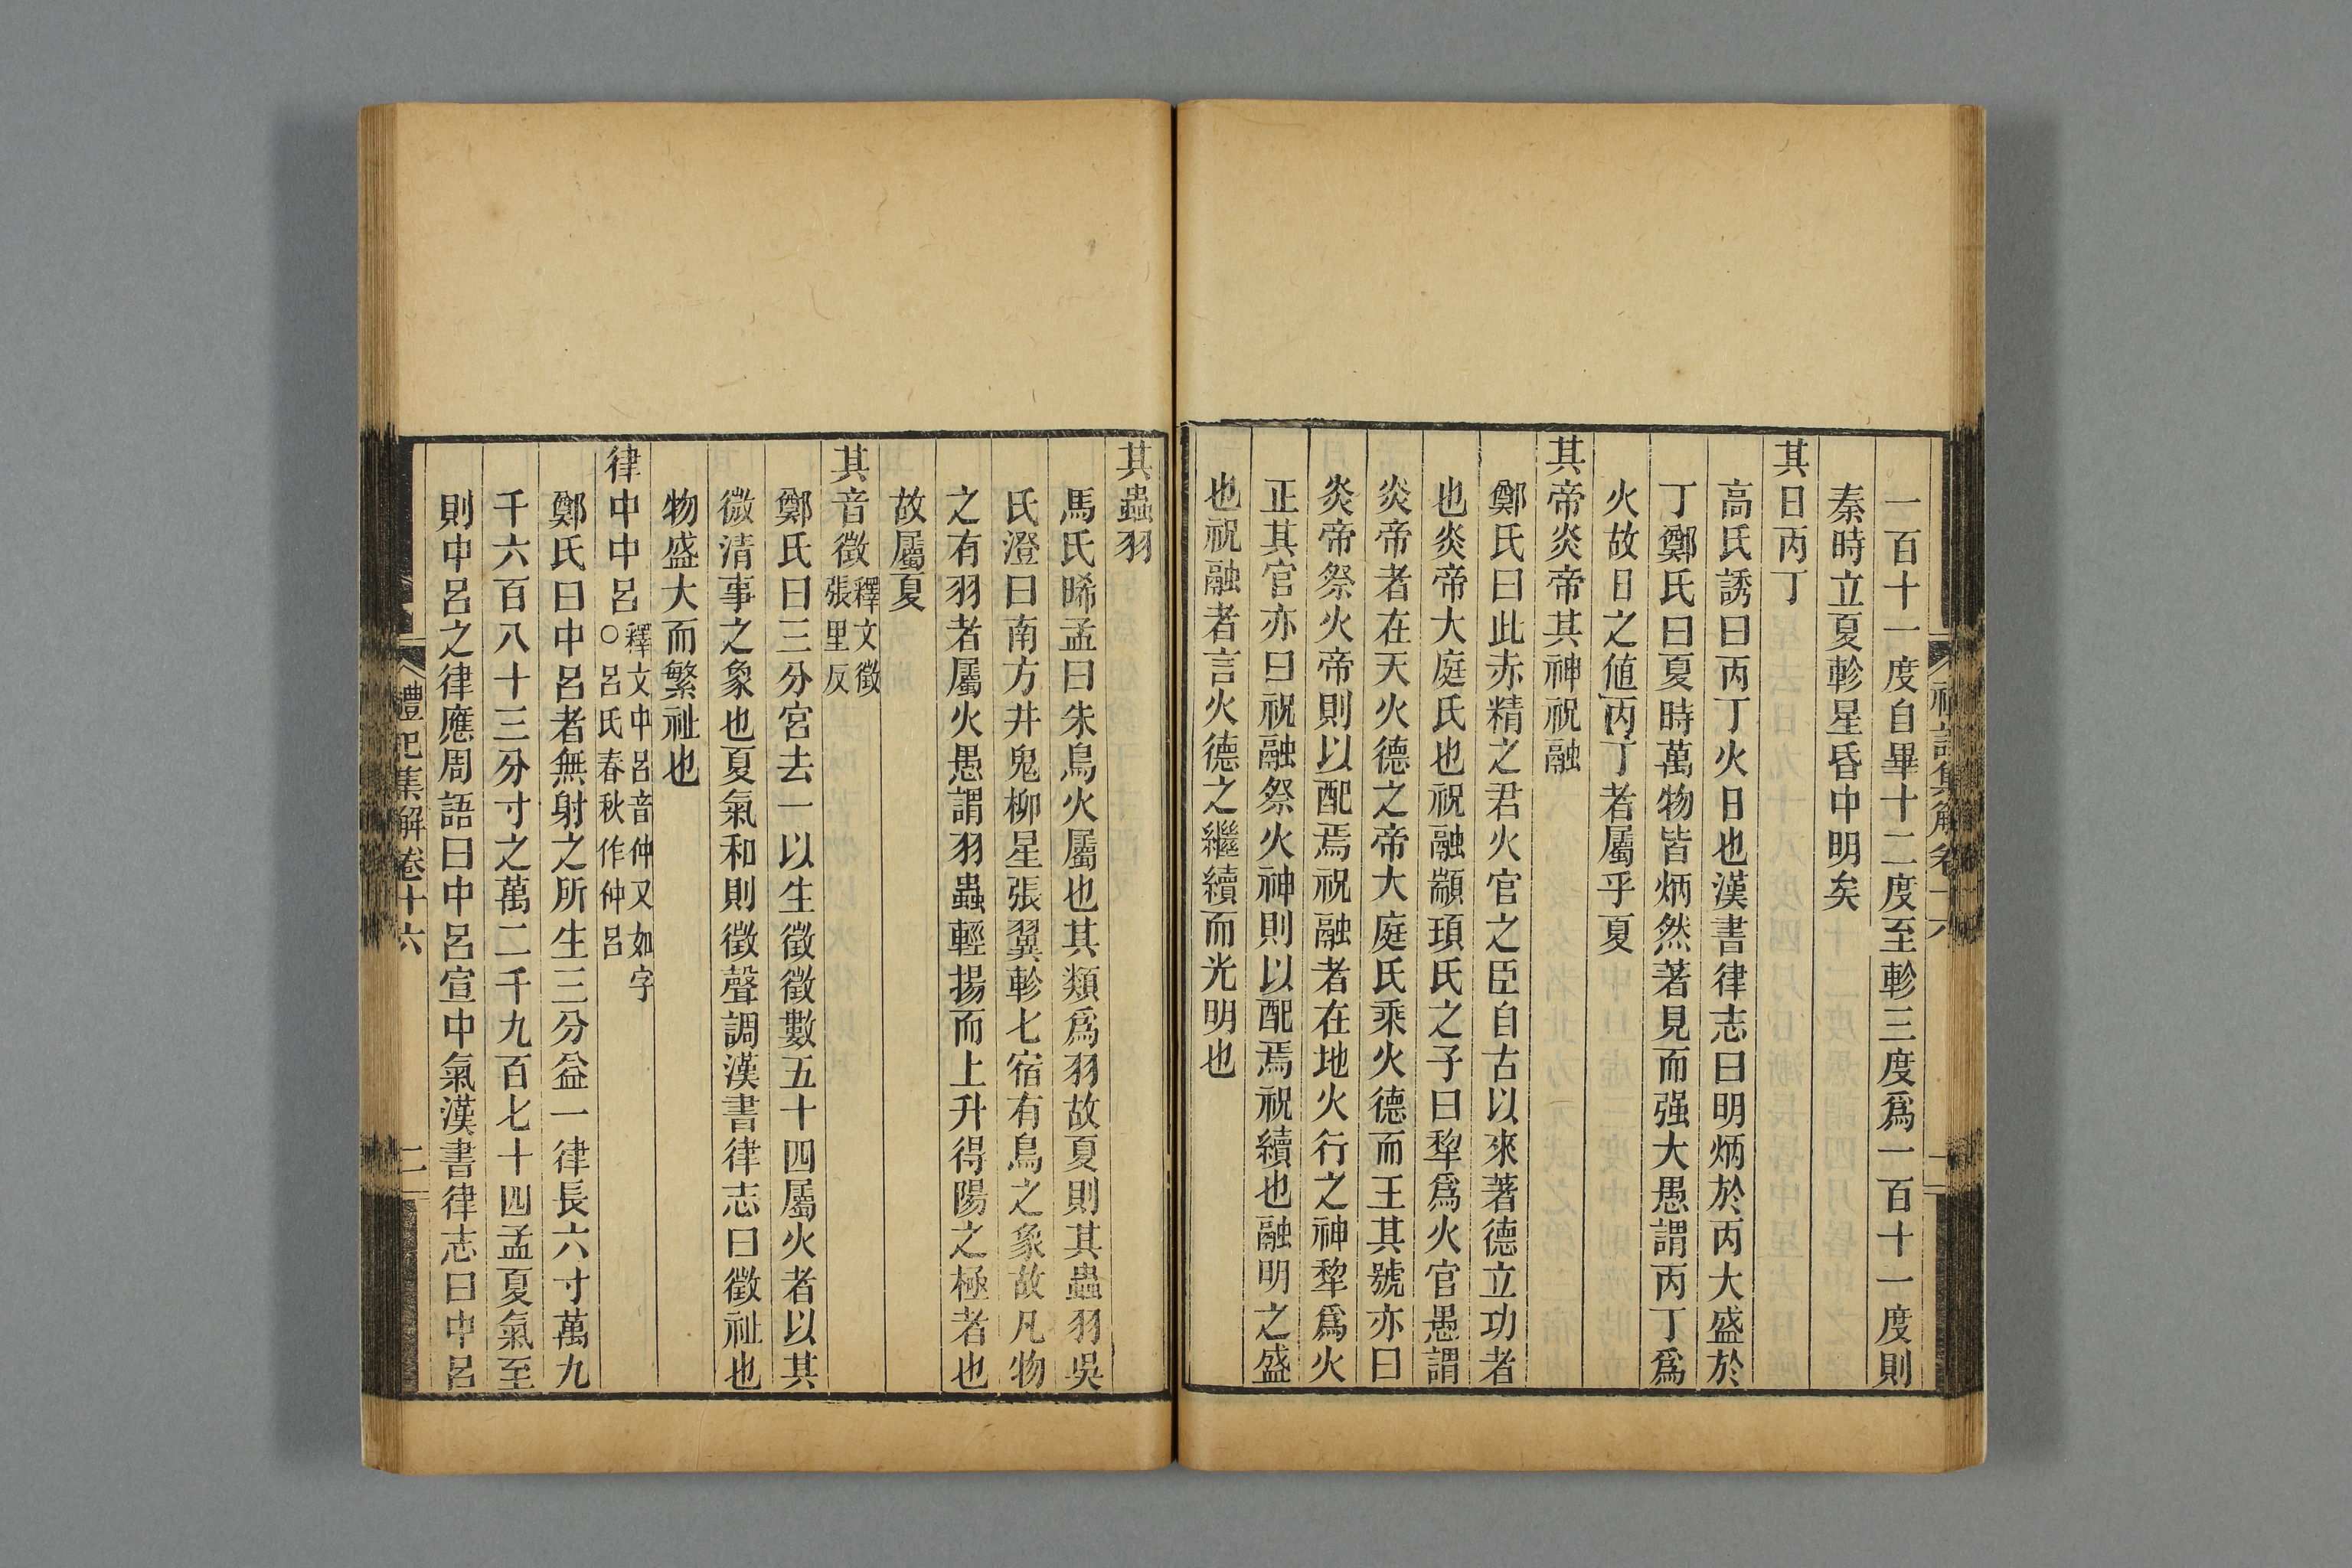 一百十一度自畢十二度至軫三度爲一百十一度則
秦時立夏軫星昏中明矣
其日丙丁
高氏誘曰丙丁火日也漢書律志曰明炳於丙大盛於
丁鄭氏曰夏時萬物皆炳然著見而强大愚謂丙丁爲
火故日之値丙丁者屬乎夏
其帝炎帝其神祝融
鄭氏曰此赤精之君火官之臣自古以來著德立功者
也炎帝大庭氏也祝融顓頊氏之子曰犂爲火官愚謂
炎帝者在天火德之帝大庭氏乘火德而王其號亦曰
炎帝祭火帝則以配焉祝融者在地火行之神犂爲火
正其官亦曰祝融祭火神則以配焉祝續也融明之盛
也祝融者言火德之繼續而光明也
其蟲羽
馬氏晞孟曰朱鳥火屬也其類爲羽故夏則其蟲羽吳
氏澄曰南方井鬼柳星張翼軫七宿有鳥之象故凡物
之有羽者屬火愚謂羽蟲輕揚而上升得陽之極者也
故屬夏
其音徵釋文徵張里反
鄭氏曰三分宮去一以生徵徵數五十四屬火者以其
微清事之象也夏氣和則徵聲調漢書律志曰徵祉也
物盛大而繁祉也
律中中呂釋文中呂音仲又如字○呂氏春秋作仲呂
鄭氏曰中呂者無射之所生三分益一律長六寸萬九
千六百八十三分寸之萬二千九百七十四孟夏氣至
則中呂之律應周語曰中呂宣中氣漢書律志曰中呂
禮記集解卷十六
二